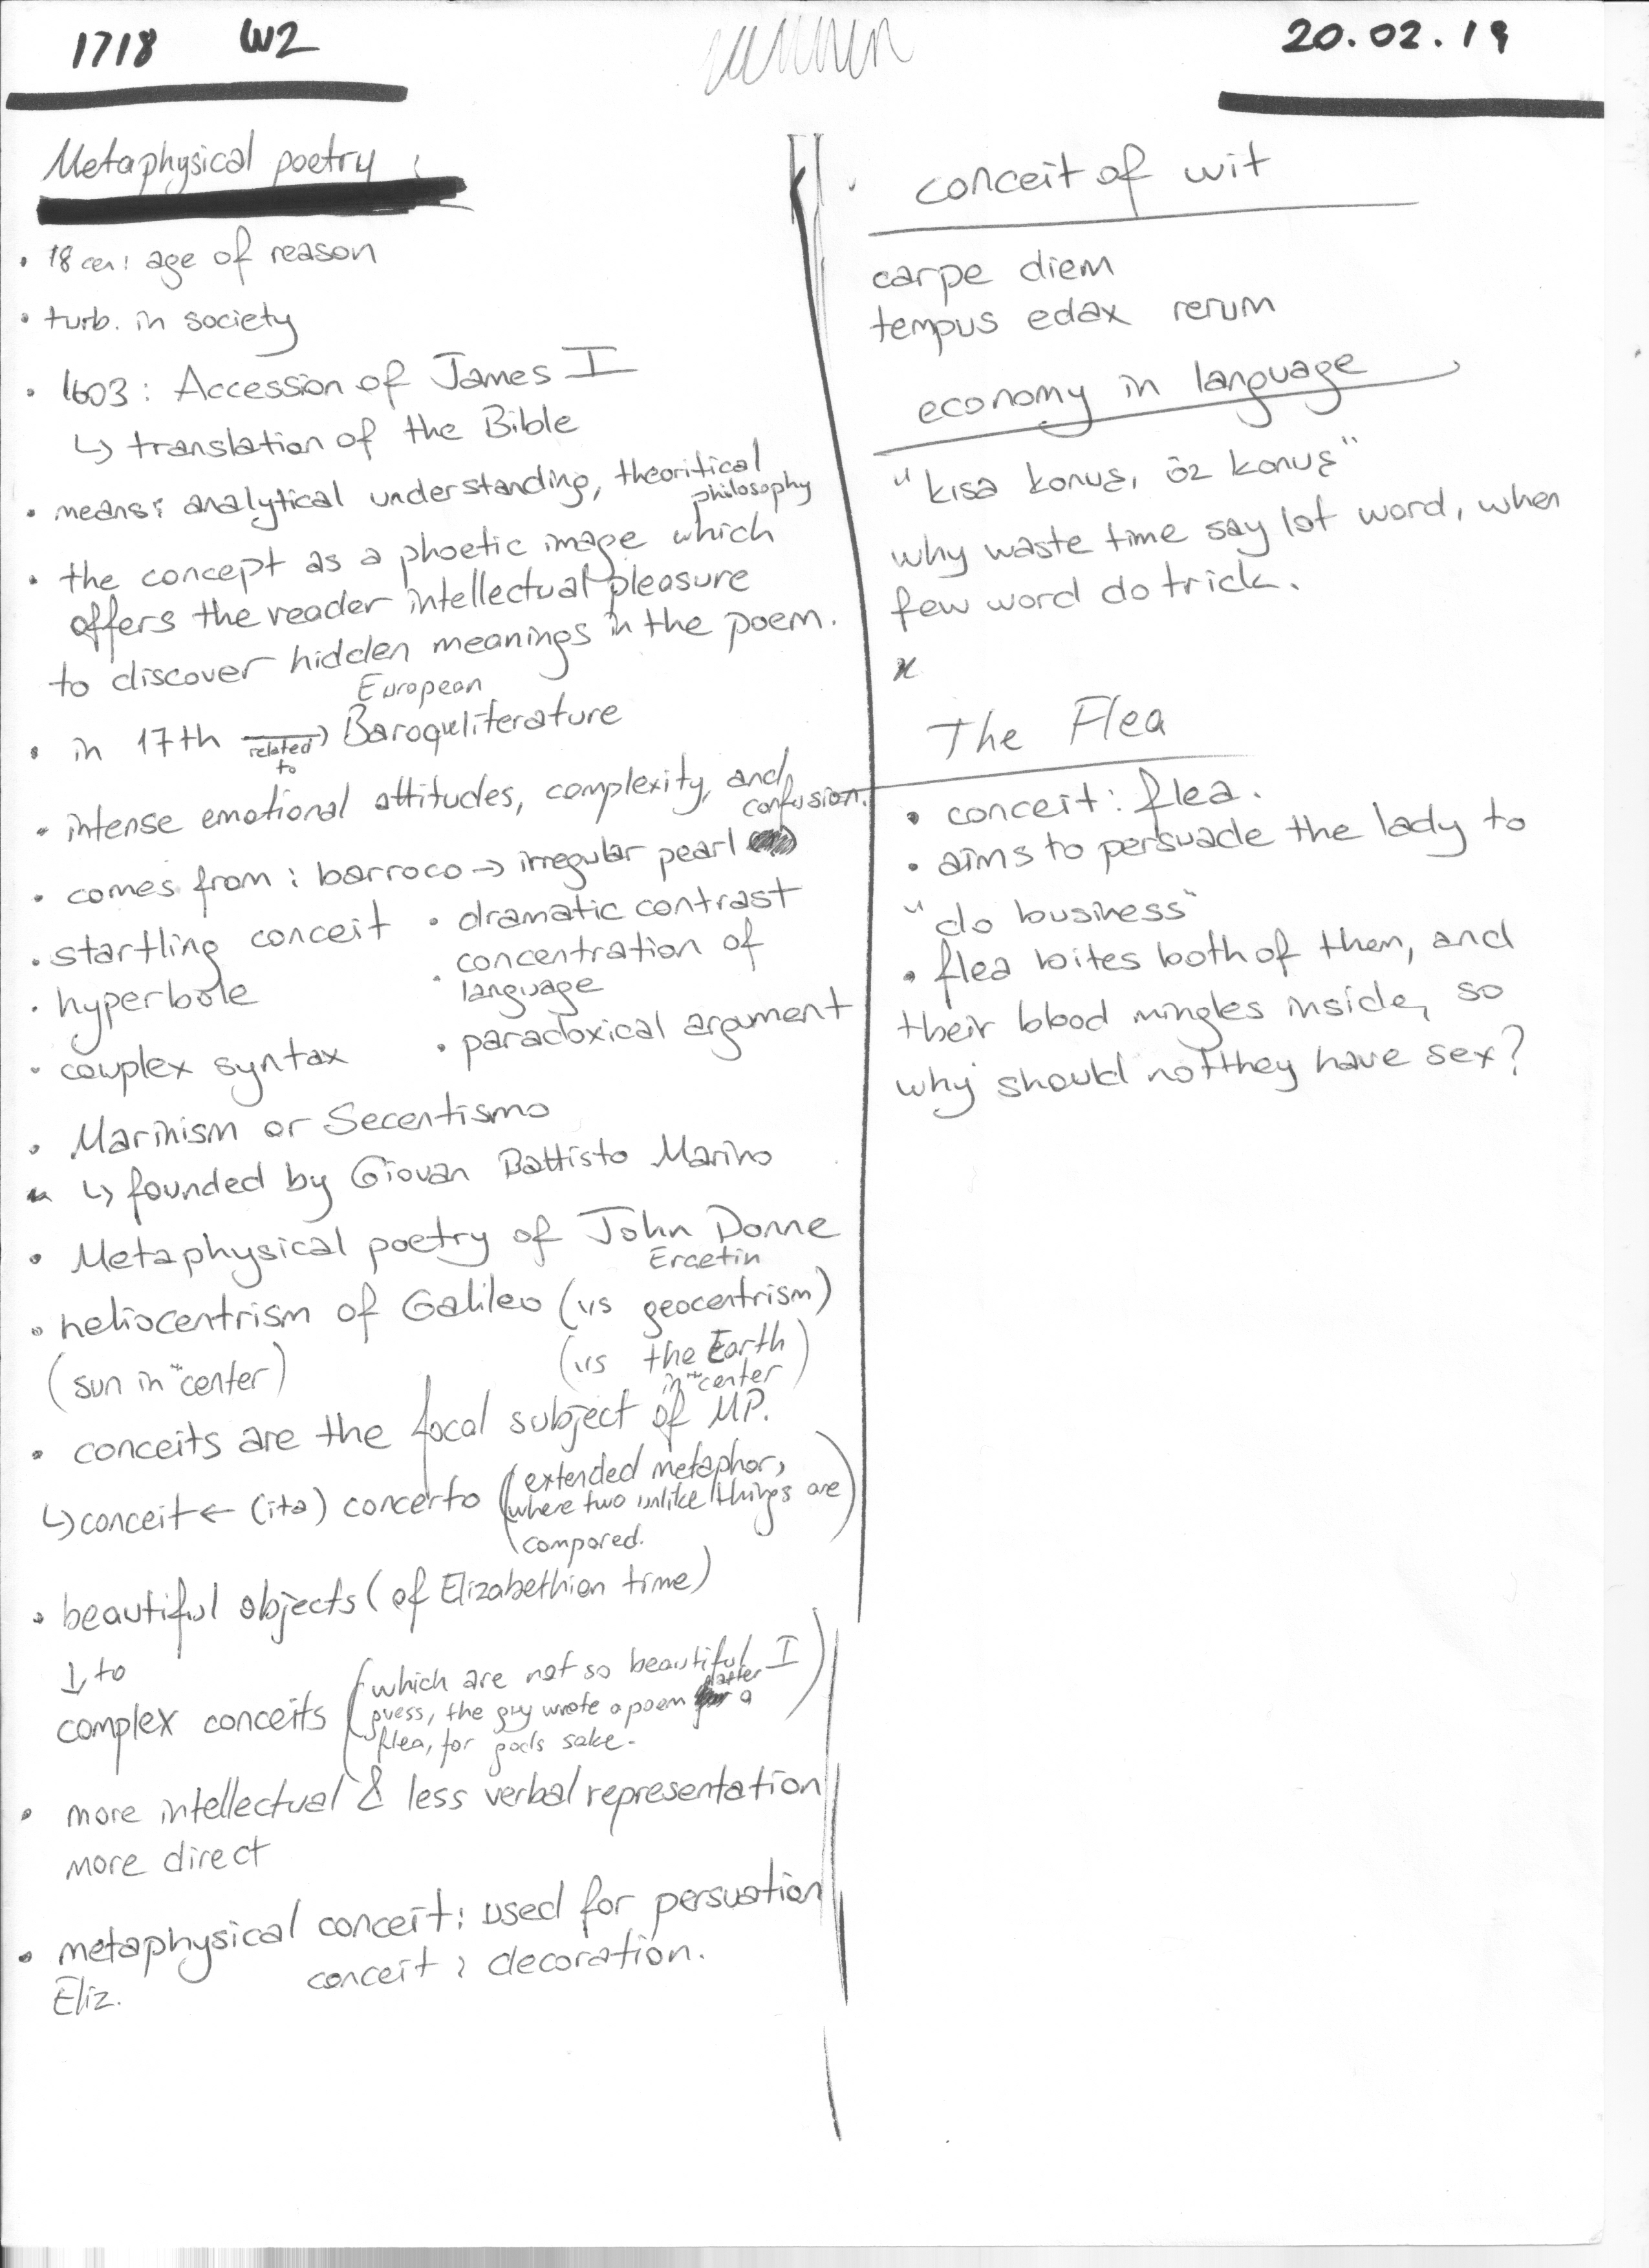 1718 W2
20.02.19
Metaphysical poetry
• 18 cen: age of reason
• turb. in society
• 1603: Accession of James I
↳ translation of the Bible
• means: analytical understanding, theoritical
philosophy
• the concept as a phoetic image which
offers the reader intellectual pleasure
to discover hidden meanings in the poem.
European
• in 17th related to → Baroque literature
• intense emotional attitudes, complexity, and
confusion.
• comes from: barroco → irregular pearl
• startling conceit • dramatic contrast
• hyperbole • concentration of
language
• complex syntax • paradoxical argument
• Marinism or Secentismo
↳ founded by Giovan Battisto Marino
• Metaphysical poetry of John Donne
Ercetin
• heliocentrism of Galileo (vs geocentrism)
(sun in the center) (vs the Earth
in the center)
• conceits are the focal subject of MP.
↳ conceit ← (ita) concerto (extended metaphor,
where two unlike things are
compared.)
• beautiful objects (of Elizabethian time)
↓ to
complex conceits (which are not so beautiful I
guess, the guy wrote a poem after a
flea, for gods sake.)
• more intellectual & less verbal representation
more direct
• metaphysical conceit: used for persuation
Eliz. conceit: decoration.
conceit of wit
carpe diem
tempus edax rerum
economy in language
"kısa konuş, öz konuş"
why waste time say lot word, when
few word do trick.
The Flea
• conceit: flea.
• aims to persuade the lady to
"do business"
• flea bites both of them, and
their blood mingles inside, so
why should not they have sex?